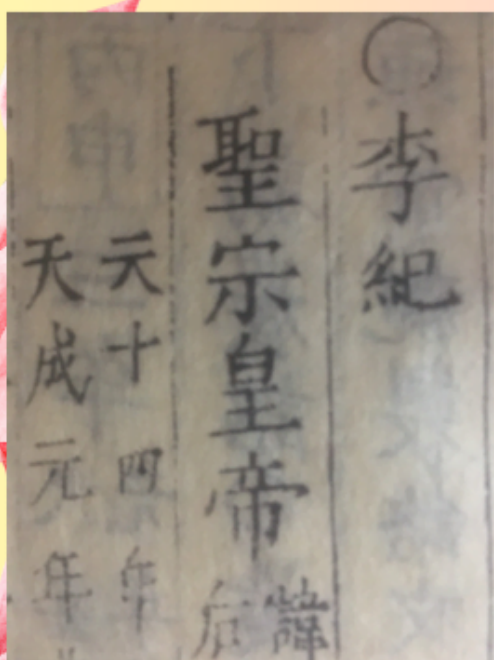 〇李紀
聖宗皇帝
諱
后
元十四年
天成元年